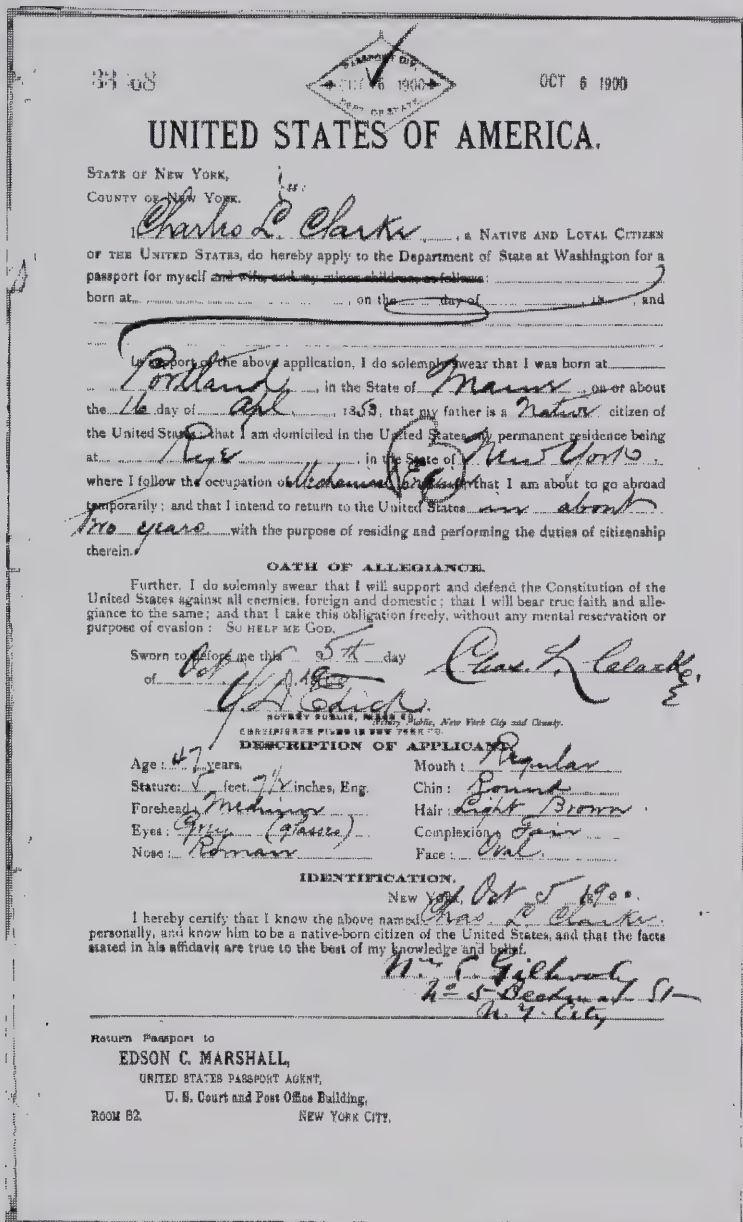 PASSPORT DIV.
OCT 6 1900
DEPT. OF STATE.
OCT 6 1900
UNITED STATES OF AMERICA.
STATE OF NEW YORK,
COUNTY OF NEW YORK. ss:
I Charles L. Clarke, a NATIVE AND LOYAL CITIZEN
OF THE UNITED STATES, do hereby apply to the Department of State at Washington for a
passport for myself and wife, and my minor children, as follows:
born at , on the day of , 18 , and
In support of the above application, I do solemnly swear that I was born at
Portland, in the State of Maine, on or about
the 16 day of Apl, 1853, that my father is a Native citizen of
the United States; that I am domiciled in the United States, my permanent residence being
at Rye, in the State of New York,
where I follow the occupation of Mechanical; that I am about to go abroad
temporarily; and that I intend to return to the United States in about
two years with the purpose of residing and performing the duties of citizenship
therein.
OATH OF ALLEGIANCE.
Further, I do solemnly swear that I will support and defend the Constitution of the
United States against all enemies, foreign and domestic; that I will bear true faith and alle-
giance to the same; and that I take this obligation freely, without any mental reservation or
purpose of evasion: SO HELP ME GOD.
Sworn to before me this 5th day
Chas. L. Clarke
of Oct 1900
Notary Public, New York City and County.
CERTIFICATE FILED IN NEW YORK CO.
DESCRIPTION OF APPLICANT.
Age: 47 years, Mouth: Regular
Stature: 5 feet, 7½ inches, Eng. Chin: Round
Forehead: Medium Hair: Light Brown
Eyes: Grey (glasses) Complexion: Fair
Nose: Roman Face: Oval
IDENTIFICATION.
New York, Oct 5 1900
I hereby certify that I know the above named Chas. L. Clarke
personally, and know him to be a native-born citizen of the United States, and that the facts
stated in his affidavit are true to the best of my knowledge and belief.
No 5 Beekman St
N.Y. City
Return Passport to
EDSON C. MARSHALL,
UNITED STATES PASSPORT AGENT,
U. S. Court and Post Office Building,
ROOM 82. NEW YORK CITY.